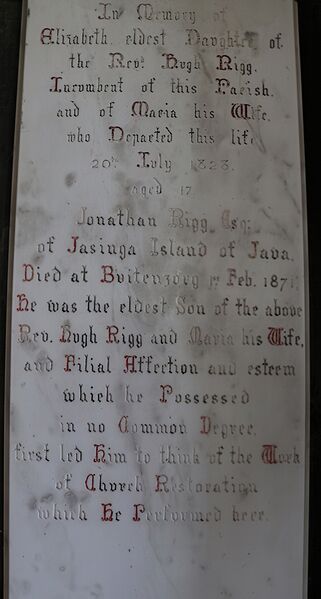 In Memory of
Elizabeth, eldest Daughter of
the Revd. Hugh Rigg,
Incumbent of this Parish,
and of Maria his Wife,
who Departed this life
20th July 1828.
aged 17
Jonathan Rigg Esq:
of Jasinga Island of Java.
Died at Buitenzorg Feb. 1871
He was the eldest Son of the above
Rev. Hugh Rigg and Maria his Wife,
and Filial Affection and esteem
which he Possessed
in no Common Degree,
first led Him to think of the Work
of Church Restoration
which He Performed here.